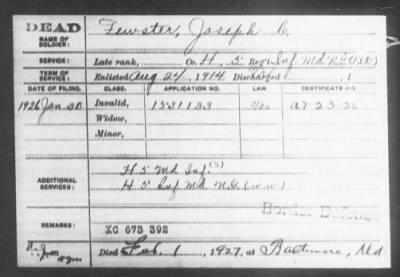 DEAD
NAME OF SOLDIER: Fewster, Joseph C.
SERVICE: Late rank, Co. H, 5 Reg't Inf. Md. N.G. (1st)
TERM OF SERVICE: Enlisted Aug 24, 1914 Discharged , 1
DATE OF FILING. CLASS. APPLICATION NO. LAW. CERTIFICATE NO.
1926 Jan. 30 Invalid, 1531133 A7-23-26
Widow,
Minor,
ADDITIONAL SERVICES: H 5" Md Inf. (S)
H. 5" Inf. Md. N.G. (W.W)
Border Defense
REMARKS: XC 673 392
Died Feb. 1, 1927, at Baltimore, Md